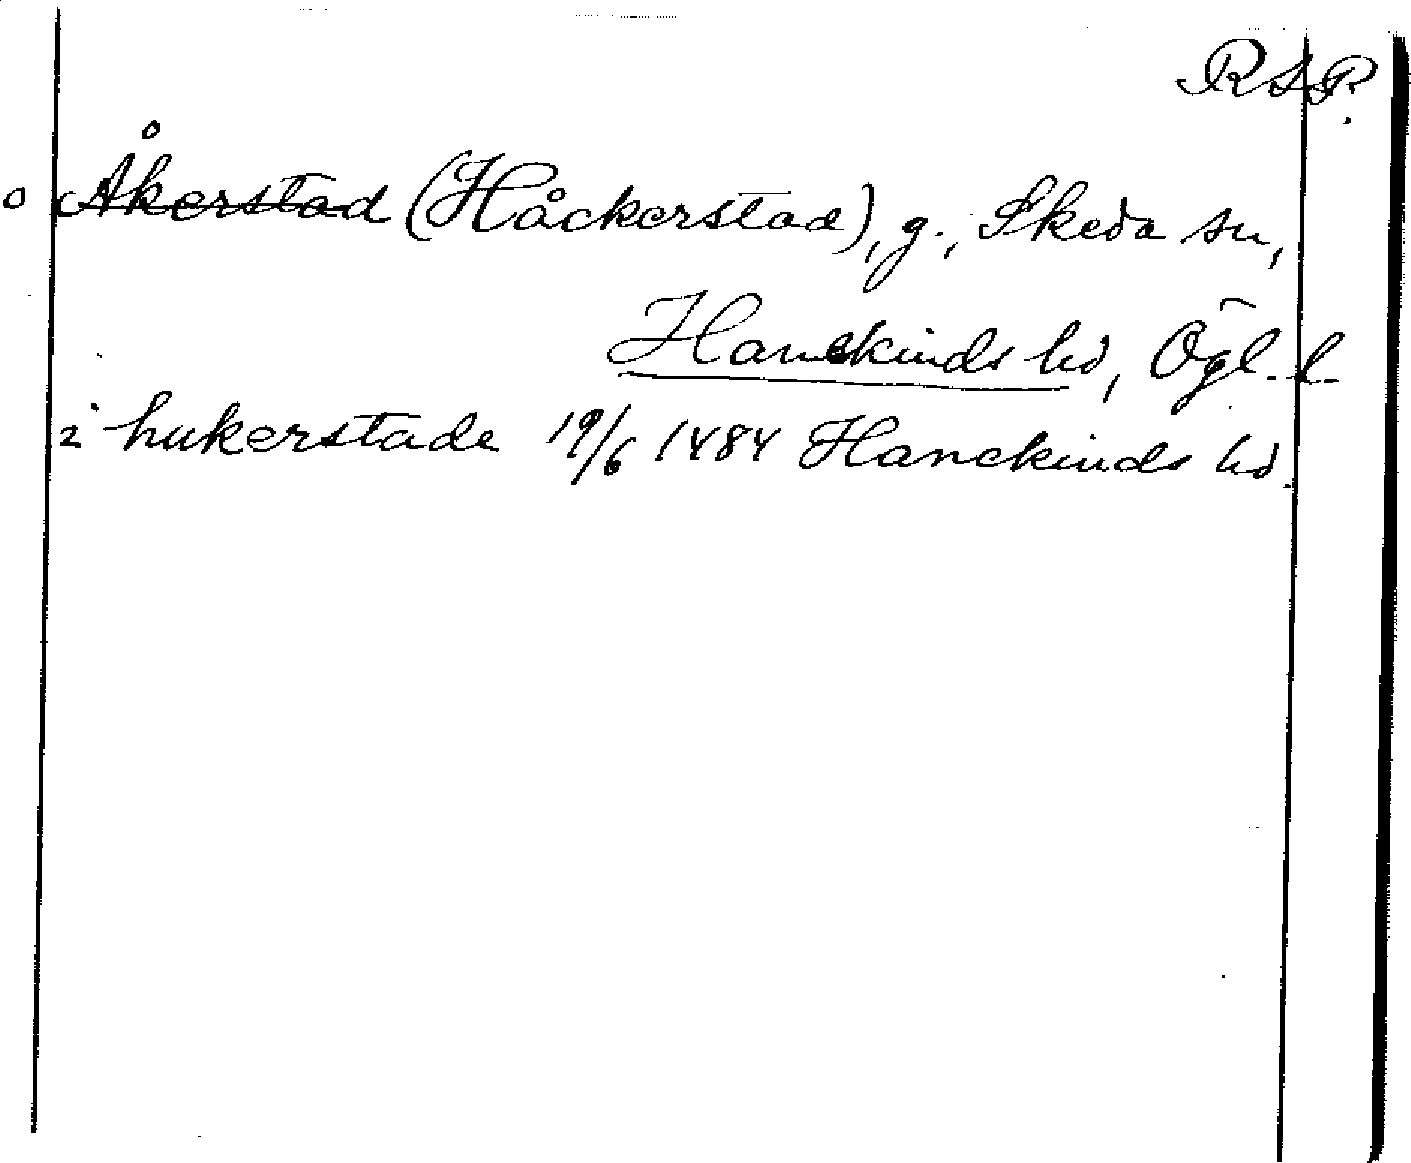 RSP.
o Åkerstad (Håckerstad), g., Skeda sn,
Hanekinds hd, Ögl. l.
i hukerstade 19/6 1484 Hanekinds hd.